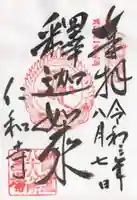 奉拝
令和三年
八月七日
釋迦如来
仁和寺